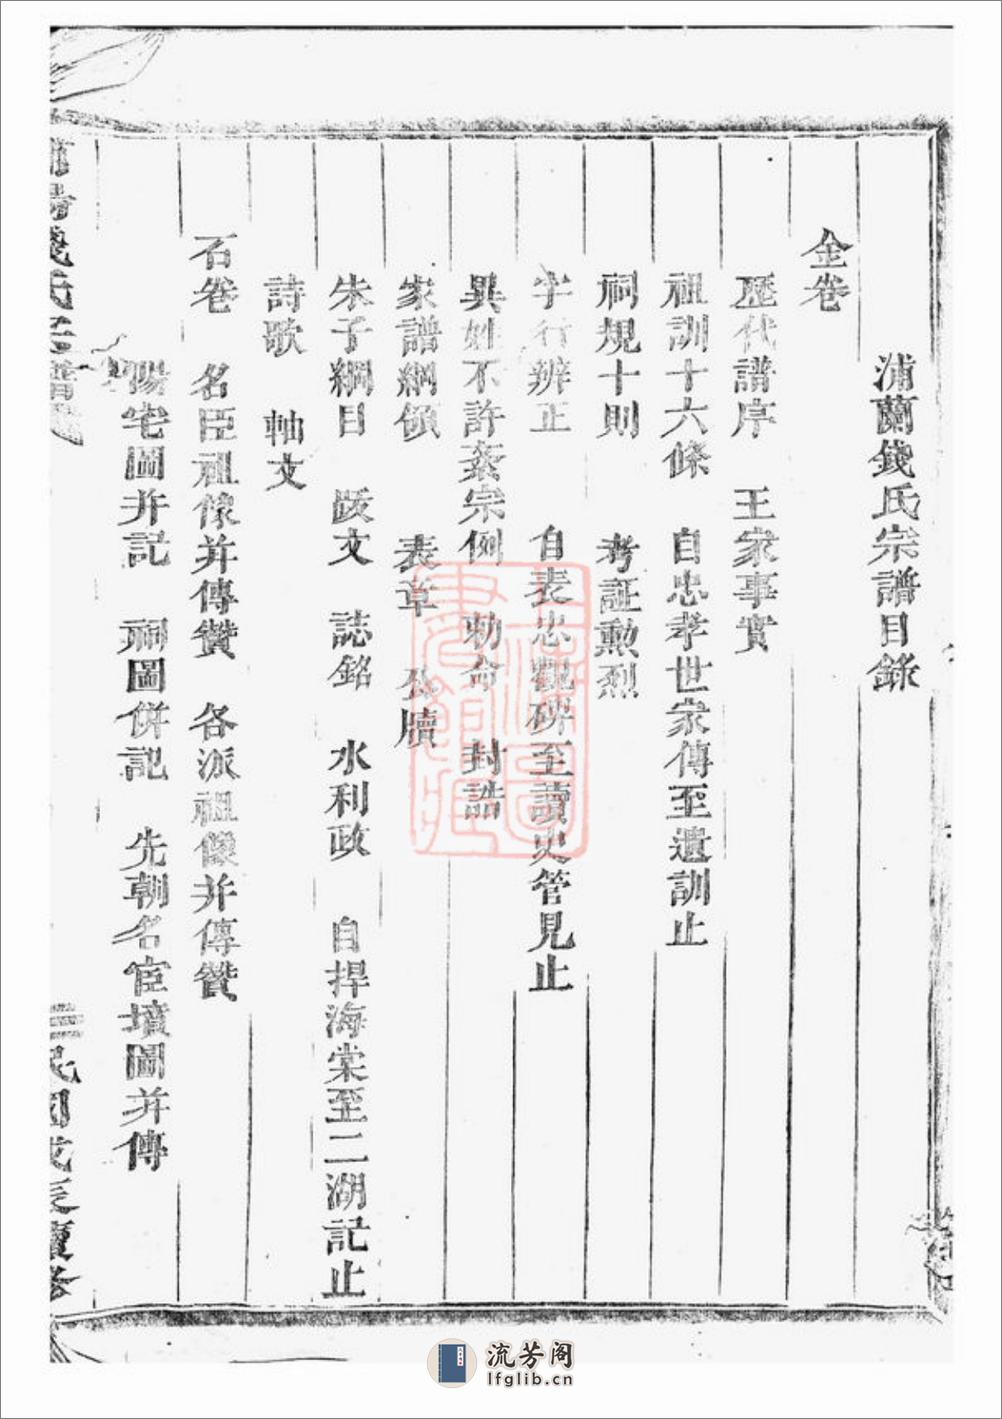 浦蘭錢氏宗譜目錄
金卷
歷代譜序 王家事實
祖訓十六條 自忠孝世家傳至遺訓止
祠規十則 考証勳烈
字行辨正 自表忠觀碑至讀史管見止
異姓不許紊宗例 勅命 封誥
家譜綱領 表章 公牘
朱子綱目 跋文 誌銘 水利政 自捍海棠至二湖記止
詩歌 軸文
石卷 名臣祖像并傳贊 各派祖像并傳贊
陽宅圖并記 祠圖併記 先朝名宦墳圖并傳
錢氏宗譜
民國戊辰續修
流芳阁
lfglib.cn